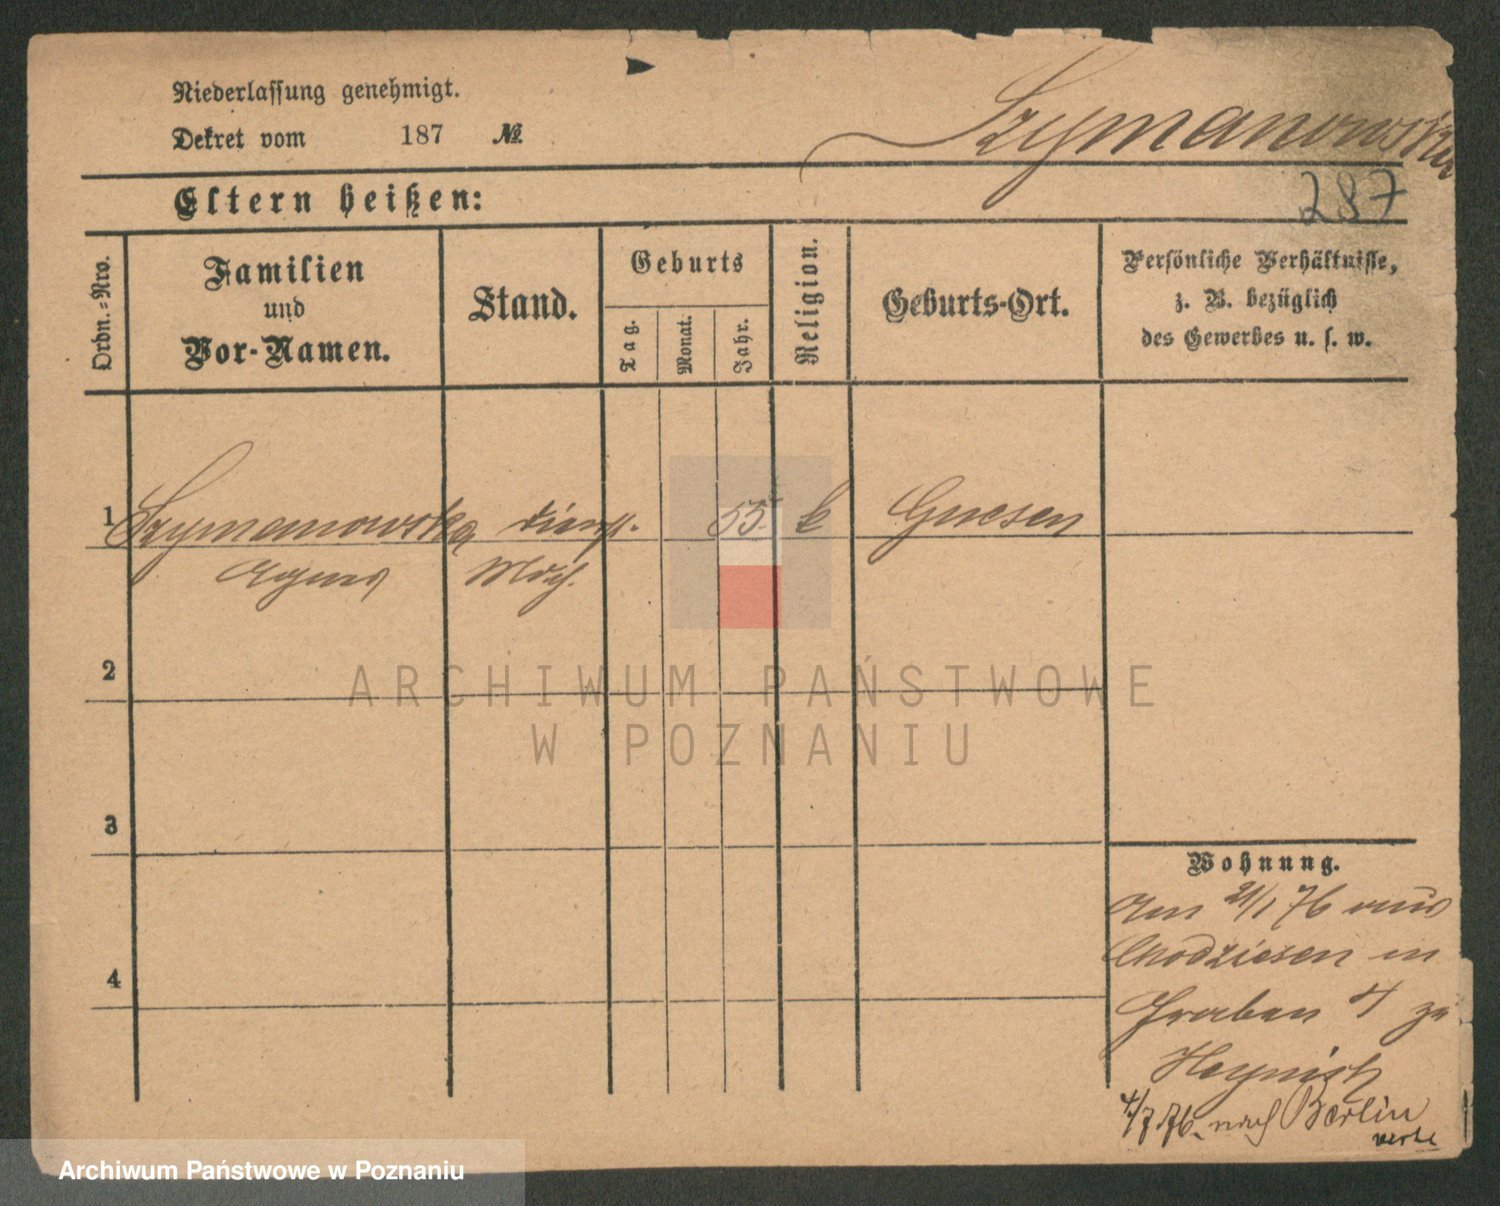 Niederlassung genehmigt.
Dekret vom 187 №
Szymanowska
287
Eltern heißen:
Ordn.-Nro.
Familien
und
Vor-Namen.
Stand.
Geburts
Tag.
Monat.
Jahr.
Religion.
Geburts-Ort.
Persönliche Verhältnisse,
z. B. bezüglich
des Gewerbes u. s. w.
1 Szymanowska Dienst- 55. k Gnesen
Agnes Mdch.
2
3
4
Wohnung.
Am 21/1 76 aus
Chodziesen in
Graben 4 zu
4/7 76. nach Berlin
ARCHIWUM PAŃSTWOWE
W POZNANIU
Archiwum Państwowe w Poznaniu